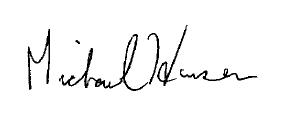 Michael Hansen